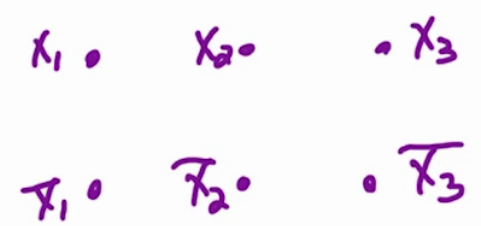 x₁ x₂ x₃
x̅₁ x̅₂ x̅₃